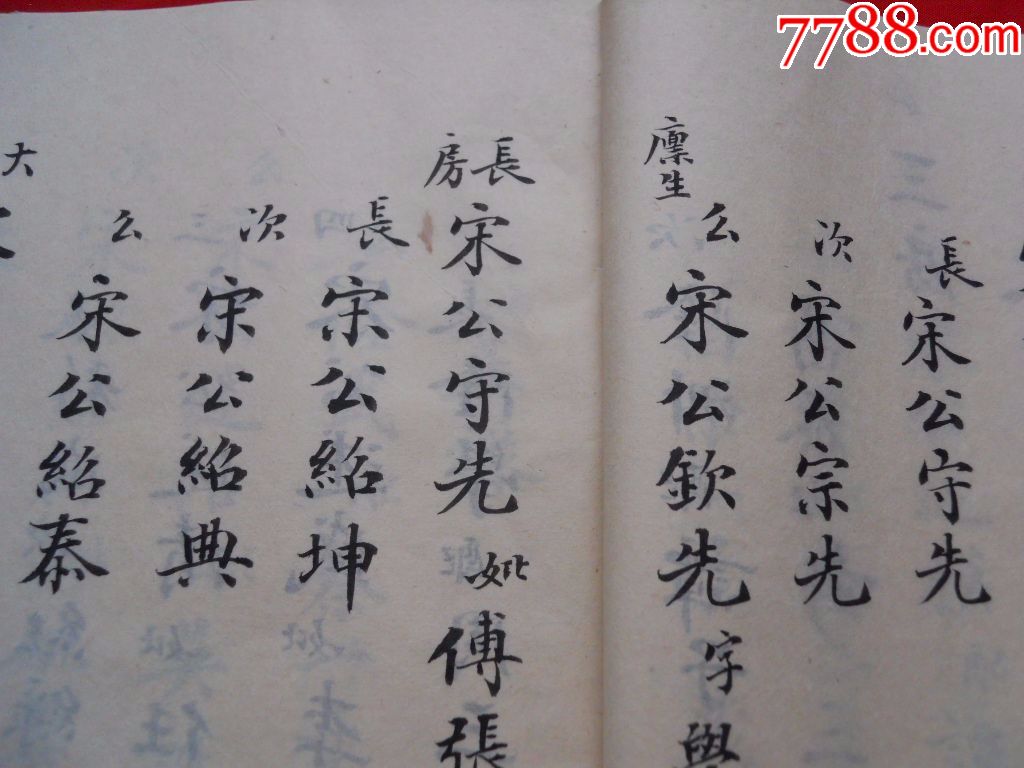 7788.com
長宋公守先
次宋公宗先
廪生
么宋公欽先字學
長房宋公守先妣傅張
長宋公紹坤
次宋公紹典
么宋公紹泰
大